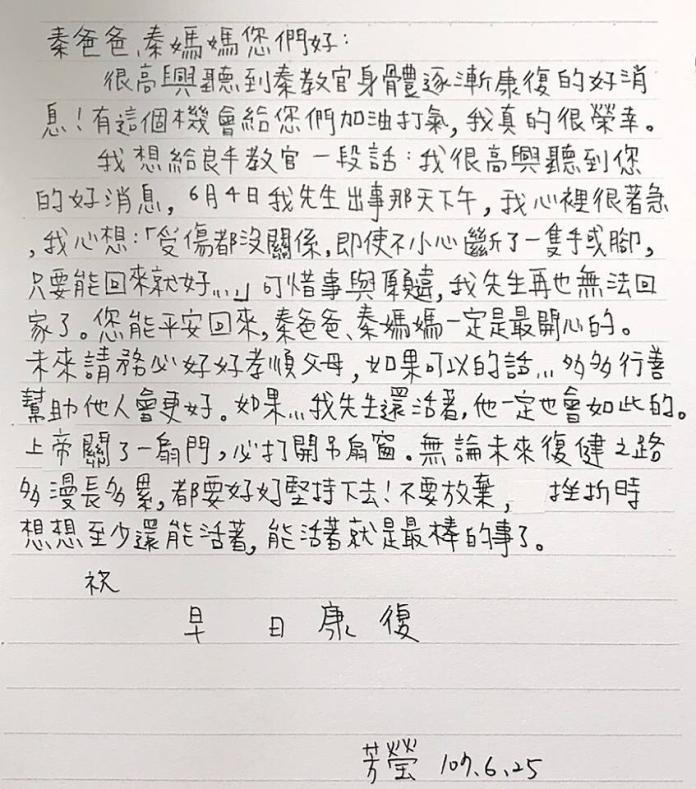 秦爸爸、秦媽媽您們好：
很高興聽到秦教官身體逐漸康復的好消
息！有這個機會給您們加油打氣，我真的很榮幸。
我想給良丰教官一段話：我很高興聽到您
的好消息，6月4日我先生出事那天下午，我心裡很著急
，我心想：「受傷都沒關係，即使不小心斷了一隻手或腳，
只要能回來就好…」可惜事與願違，我先生再也無法回
家了。您能平安回來，秦爸爸、秦媽媽一定是最開心的。
未來請務必好好孝順父母，如果可以的話…多多行善
幫助他人會更好。如果…我先生還活著，他一定也會如此的。
上帝關了一扇門，必打開另扇窗。無論未來復健之路
多漫長多累，都要好好堅持下去！不要放棄， 挫折時
想想至少還能活著，能活著就是最棒的事了。
祝
早 日 康 復
芳瑩 107.6.25